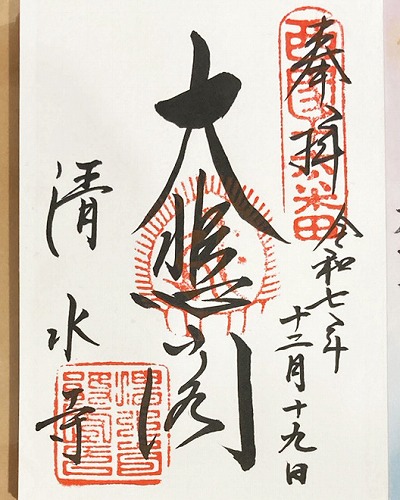 奉拝
令和七年
十二月十九日
大悲閣
清水寺